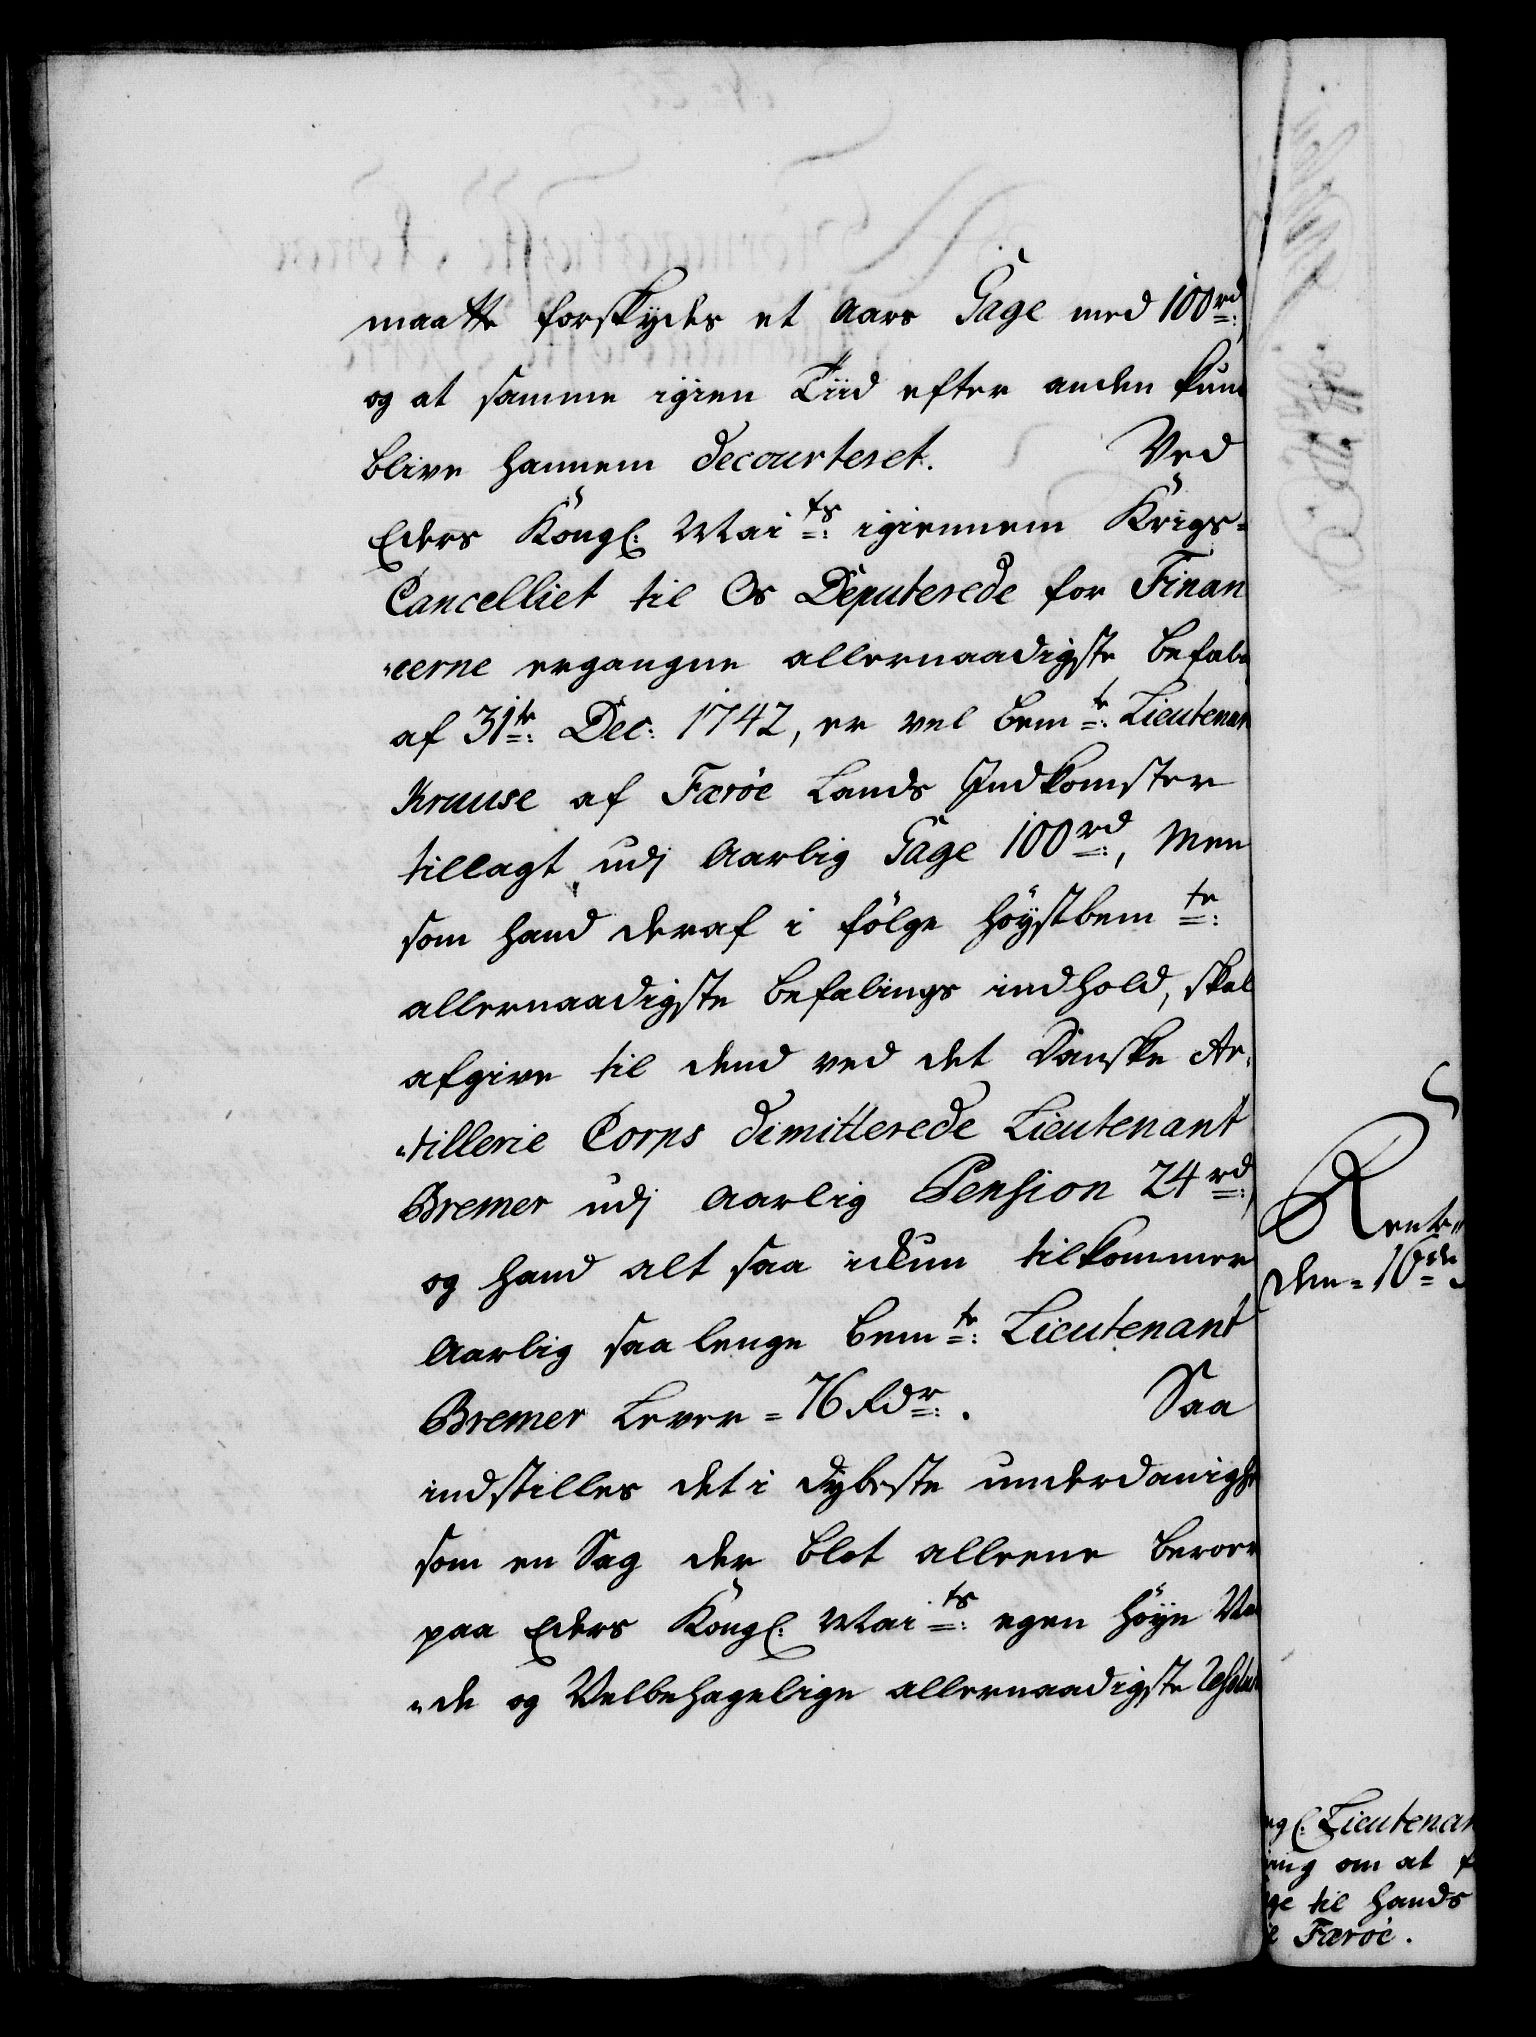 maatte forskydes et Aars Gage med 100 rd:
og at samme igien Tiid efter anden kun
blive hannem decourteret. Ved
Eders Kongl: Mai ts: igiennem Krigs-
Cancelliet til Os Deputerede for Finan
"cerne ergangne allernaadigste Befal
af 31te: Dec: 1742, er vel bem te: Lieutenan
Krause af Færöe Lands Indkomster
tillagt udj Aarlig Gage 100 rd:, Men
som hand deraf i fölge höystbem te:
allernaadigste Befalings indhold, skal
afgive til dend ved det Danske Ar-
"tillerie Corps dimitterede Lieutenant
Bremer udj Aarlig Pension 24 rd:,
og hand alt saa ickun tilkommer
Aarlig saa lenge bem te: Lieutenant
Bremer Lever = 76 Rdr:. Saa
indstilles det i dybeste underdanigh
som en Sag der blot alleene beroer
paa Eders Kongl: Mai ts: egen höye Na
"de og Velbehagelige allernaadigste
Rente"
den = 16 de
ngl: Lieutenan
ning om at f
ge til hands
Færöe.